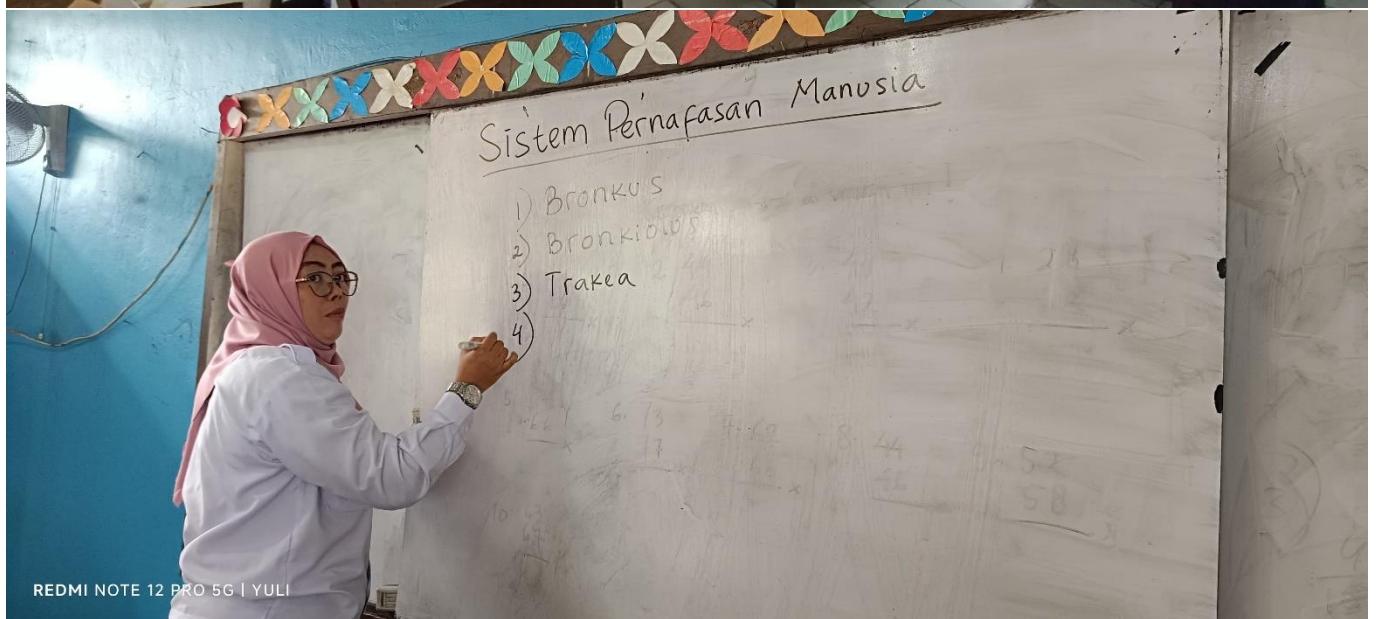 Sistem Pernafasan Manusia
1) Bronkus
2) Bronkiolus
3) Trakea
4)
6. 13
17
8. 44
52
58
REDMI NOTE 12 PRO 5G | YULI